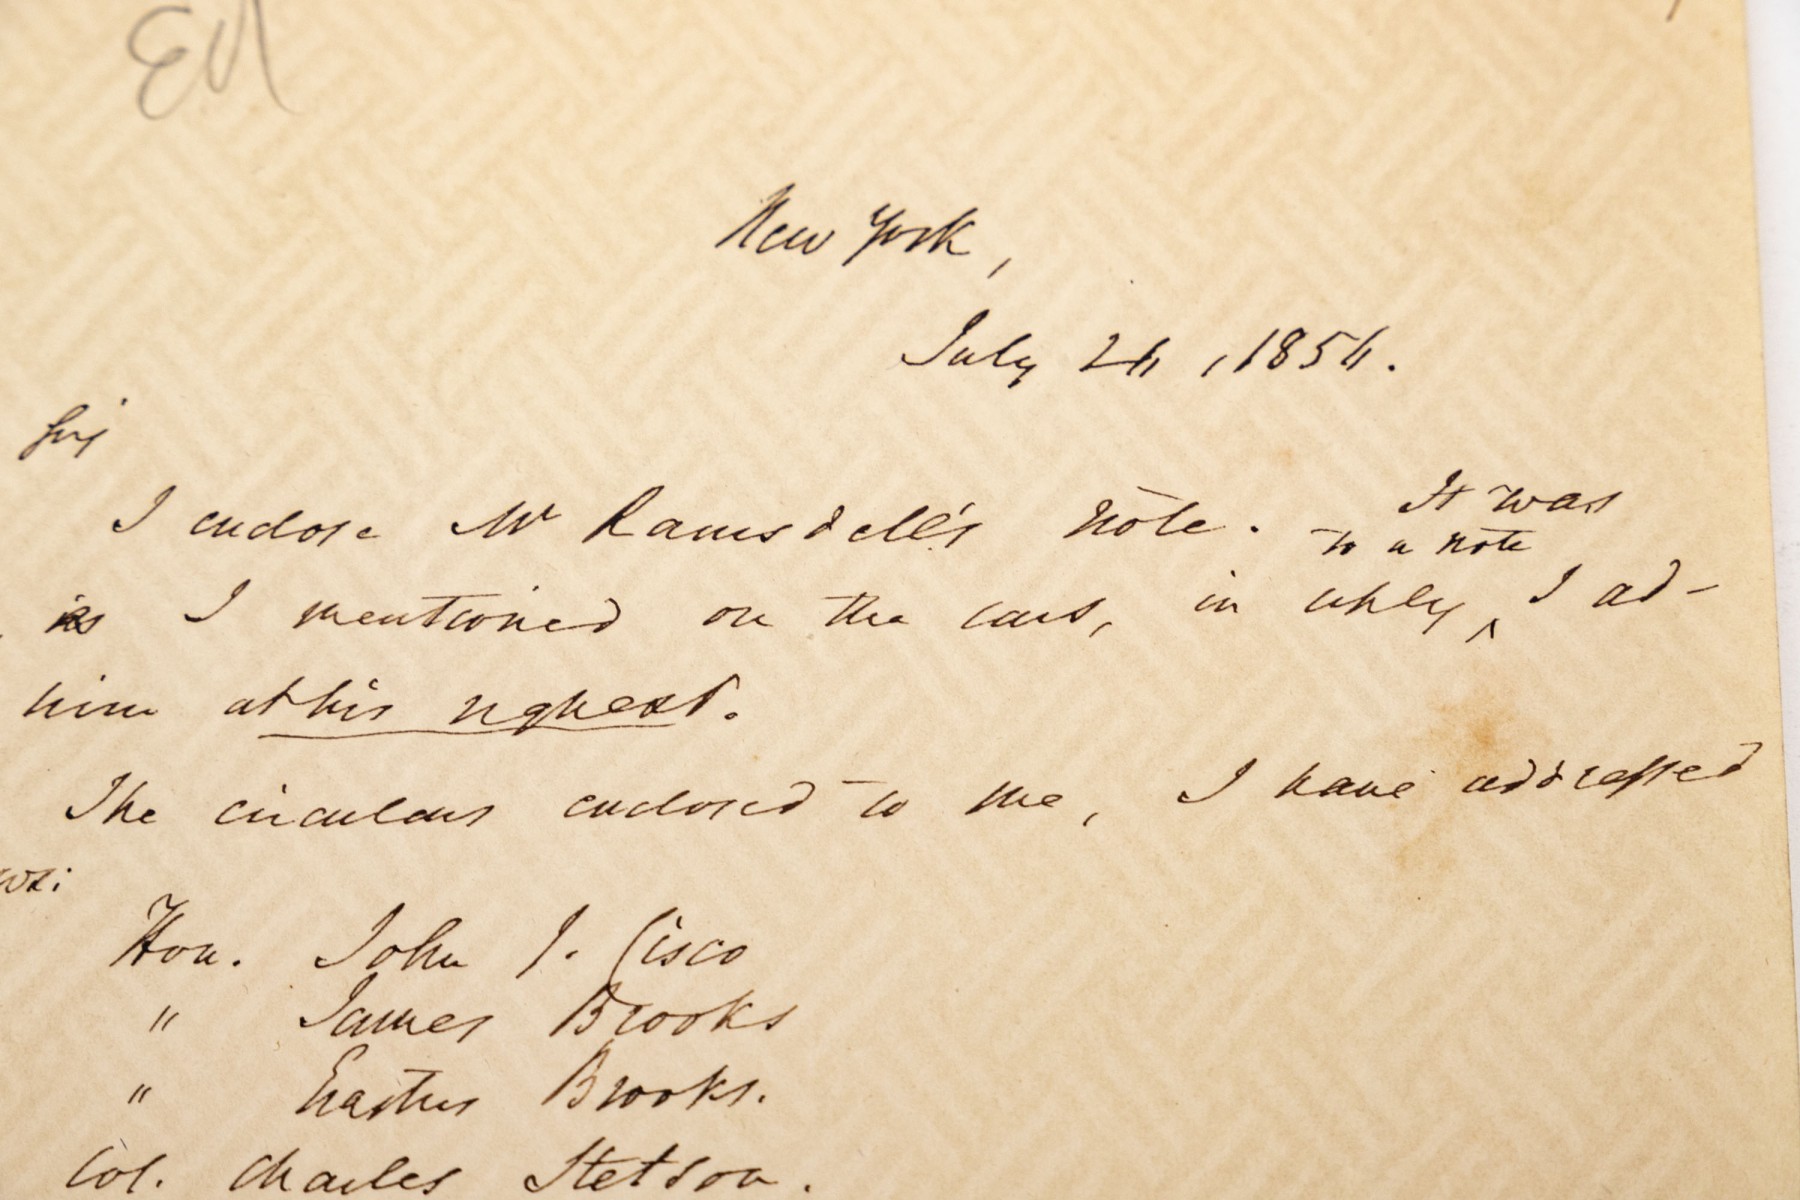 Ed
New York,
July 24, 1854.
Sir
I enclose Mr Ramsdell's note. It was
to a note
as I mentioned on the cars, in reply, I ad-
him at his request.
The circulars enclosed to me, I have addressed
viz:
Hon. John J. Cisco
" James Brooks
" Erastus Brooks.
Col. Charles Stetson.